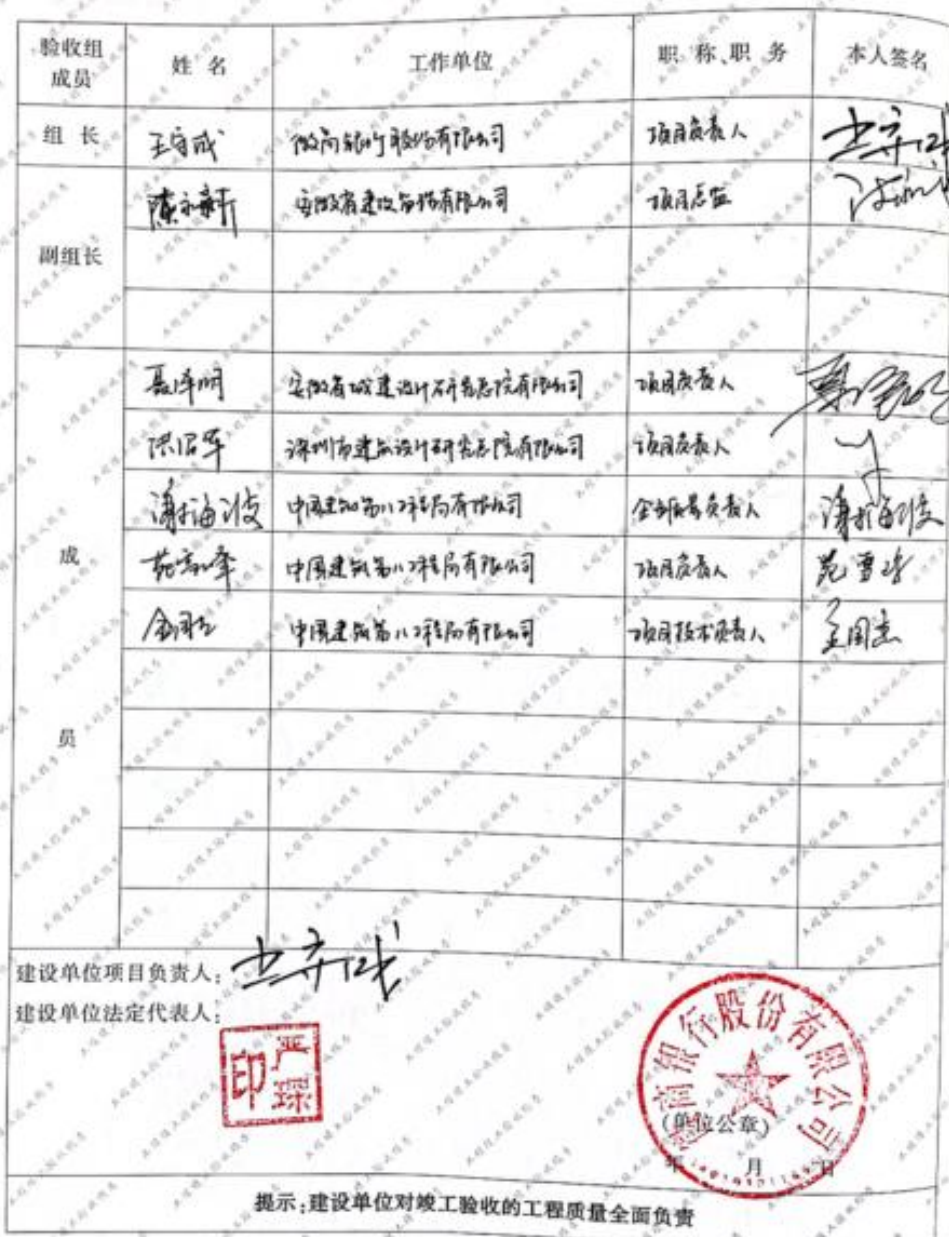 验收组成员 姓名 工作单位 职称、职务 本人签名
组长 王守成 徽商银行股份有限公司 项目负责人
副组长 陈永新 安徽省建设监理有限公司 项目总监
成员
聂泽明 安徽省城建设计研究总院有限公司 项目负责人
洪绍军 深圳市建筑设计研究总院有限公司 项目负责人
谢海波 中国建筑第八工程局有限公司 企业质量负责人 谢海波
苑雪峰 中国建筑第八工程局有限公司 项目负责人 苑雪峰
中国建筑第八工程局有限公司 项目技术负责人
建设单位项目负责人:
建设单位法定代表人:
严琛印
徽商银行股份有限公司
(单位公章)
年 月 日
提示:建设单位对竣工验收的工程质量全面负责